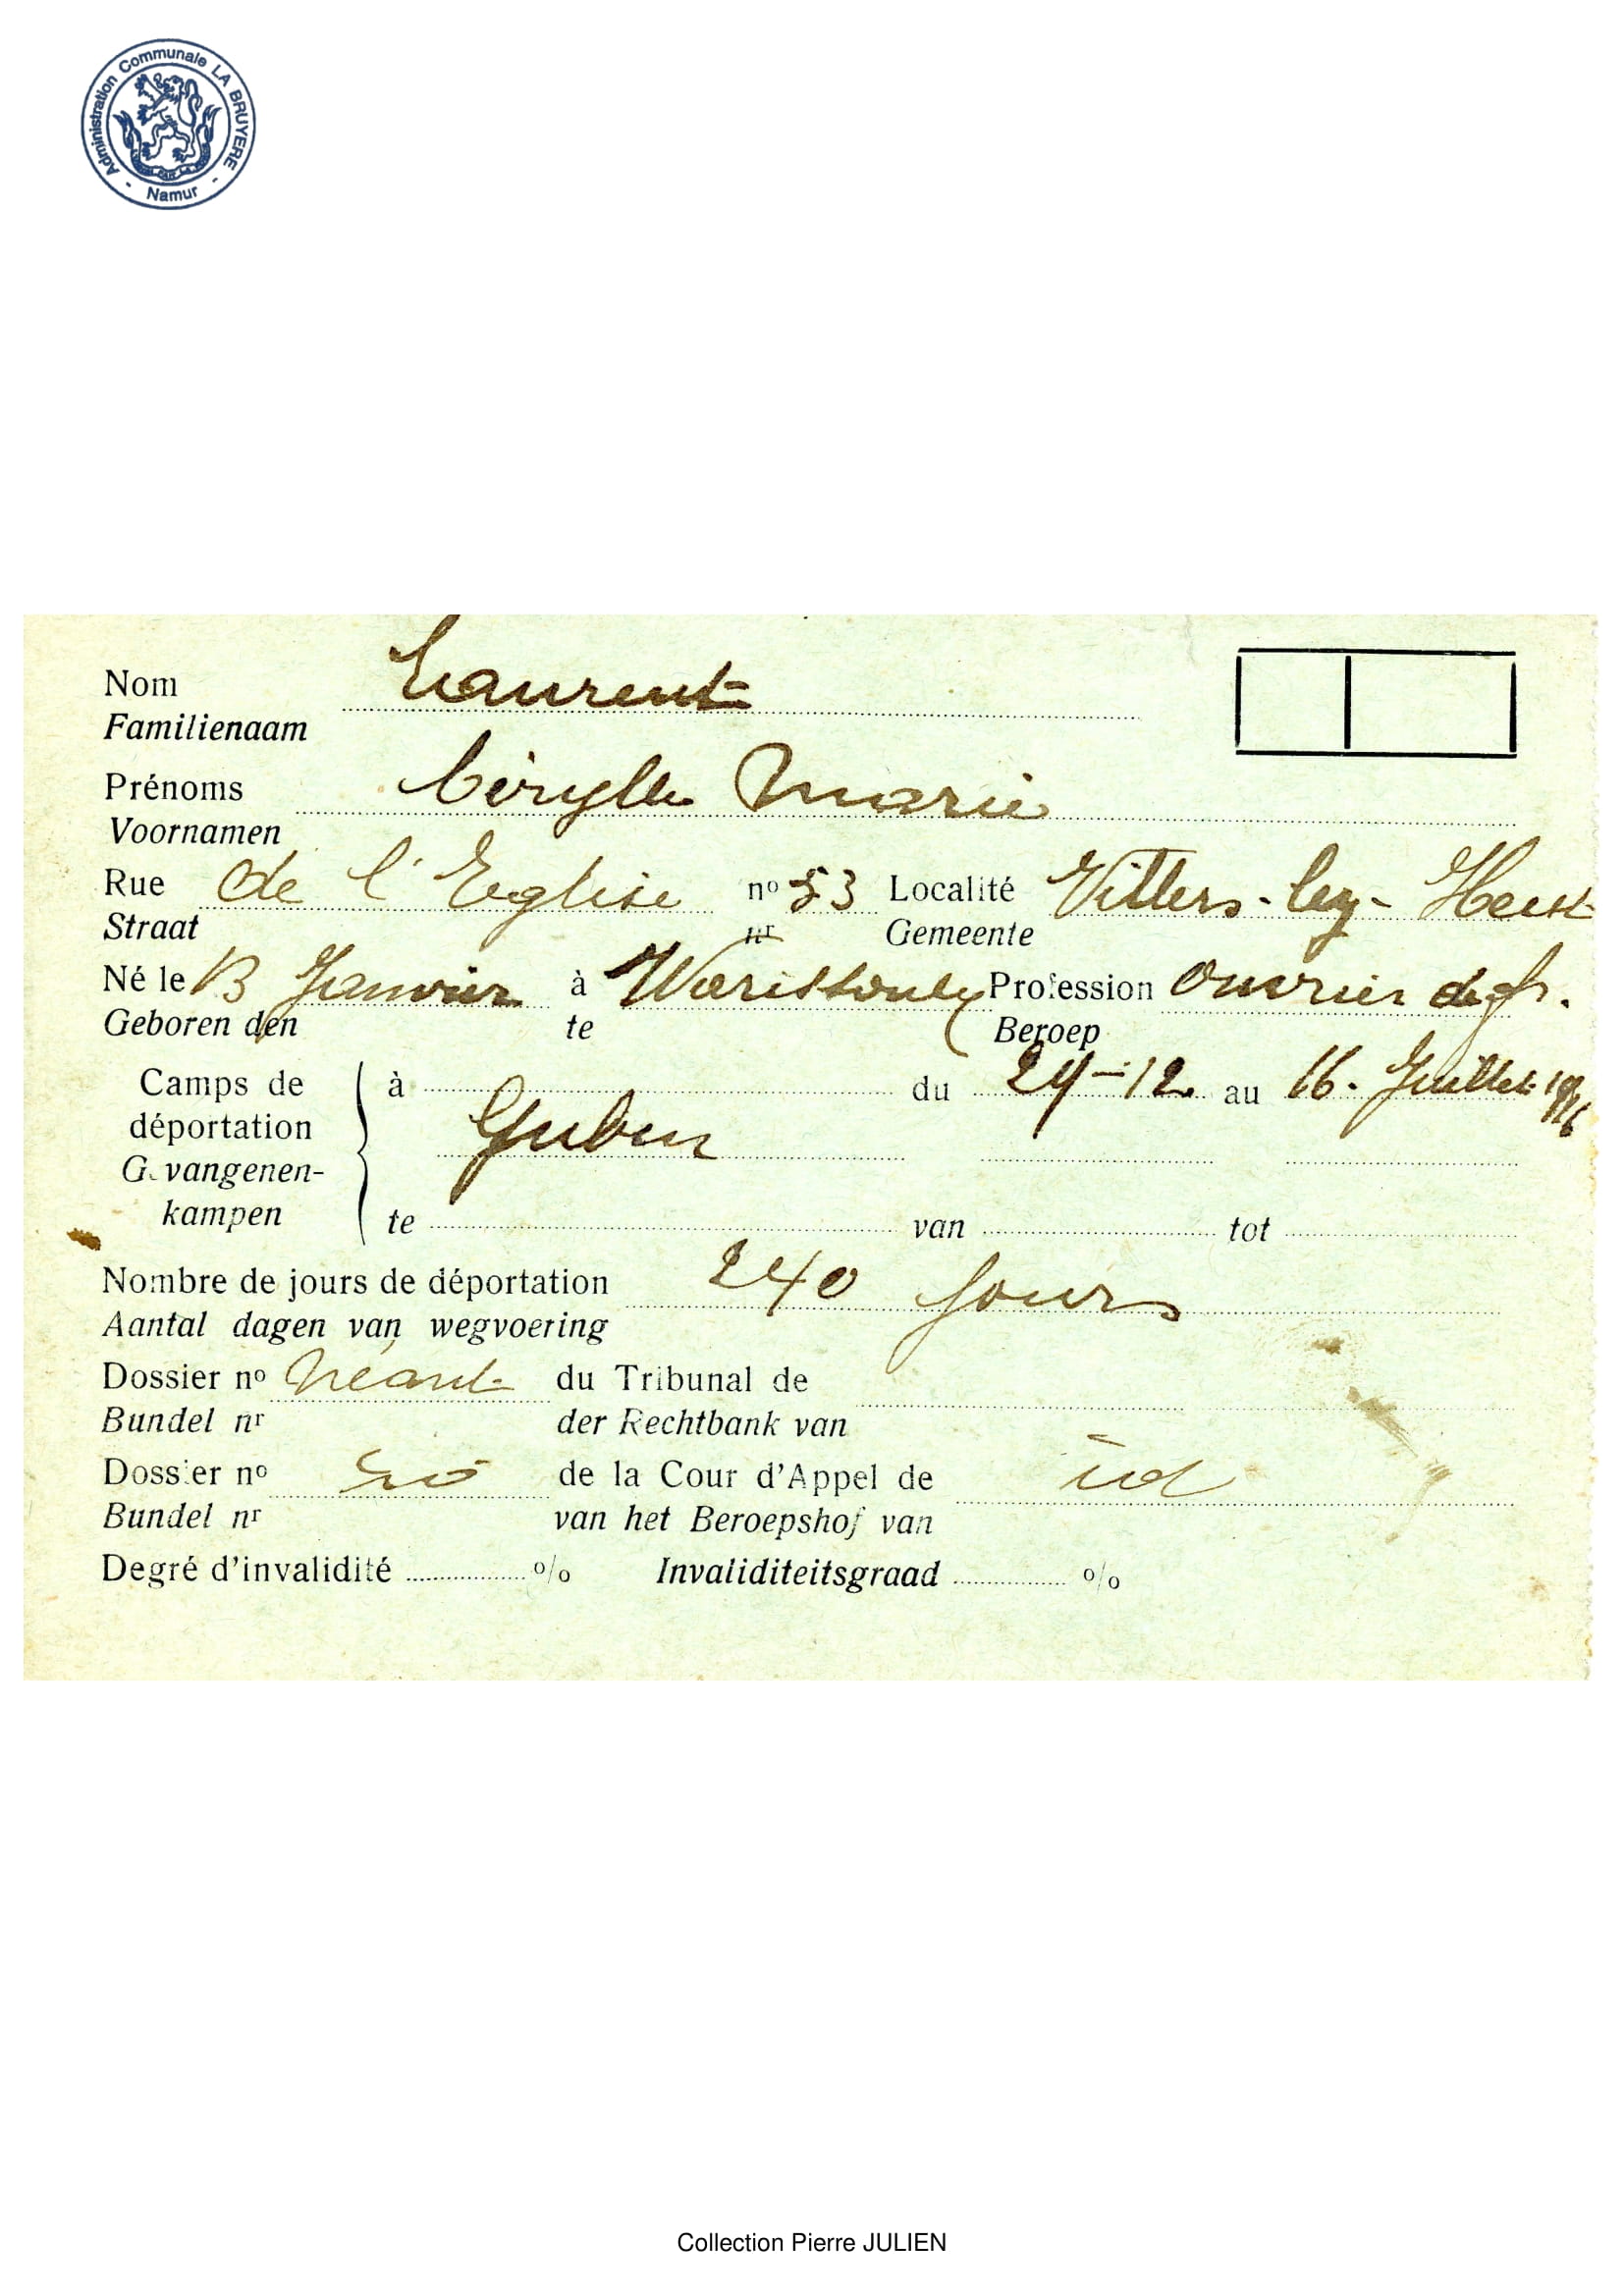 Administration Communale LA BRUYERE
- Namur -
Nom Laurent
Familienaam
Prénoms Cérylle Marie
Voornamen
Rue de l'Eglise no 53 Localité Villers-lez-Heest
Straat nr Gemeente
Né le 13 Janvier à Warisoulx Profession Ouvrier de f.
Geboren den te Beroep
Camps de à du 24-12 au 16. Juillet
déportation Guben
Gevangenen-
kampen te van tot
Nombre de jours de déportation 240 jours
Aantal dagen van wegvoering
Dossier no Néant du Tribunal de
Bundel nr der Rechtbank van
Dossier no de la Cour d'Appel de id
Bundel nr van het Beroepshof van
Degré d'invalidité % Invaliditeitsgraad %
Collection Pierre JULIEN